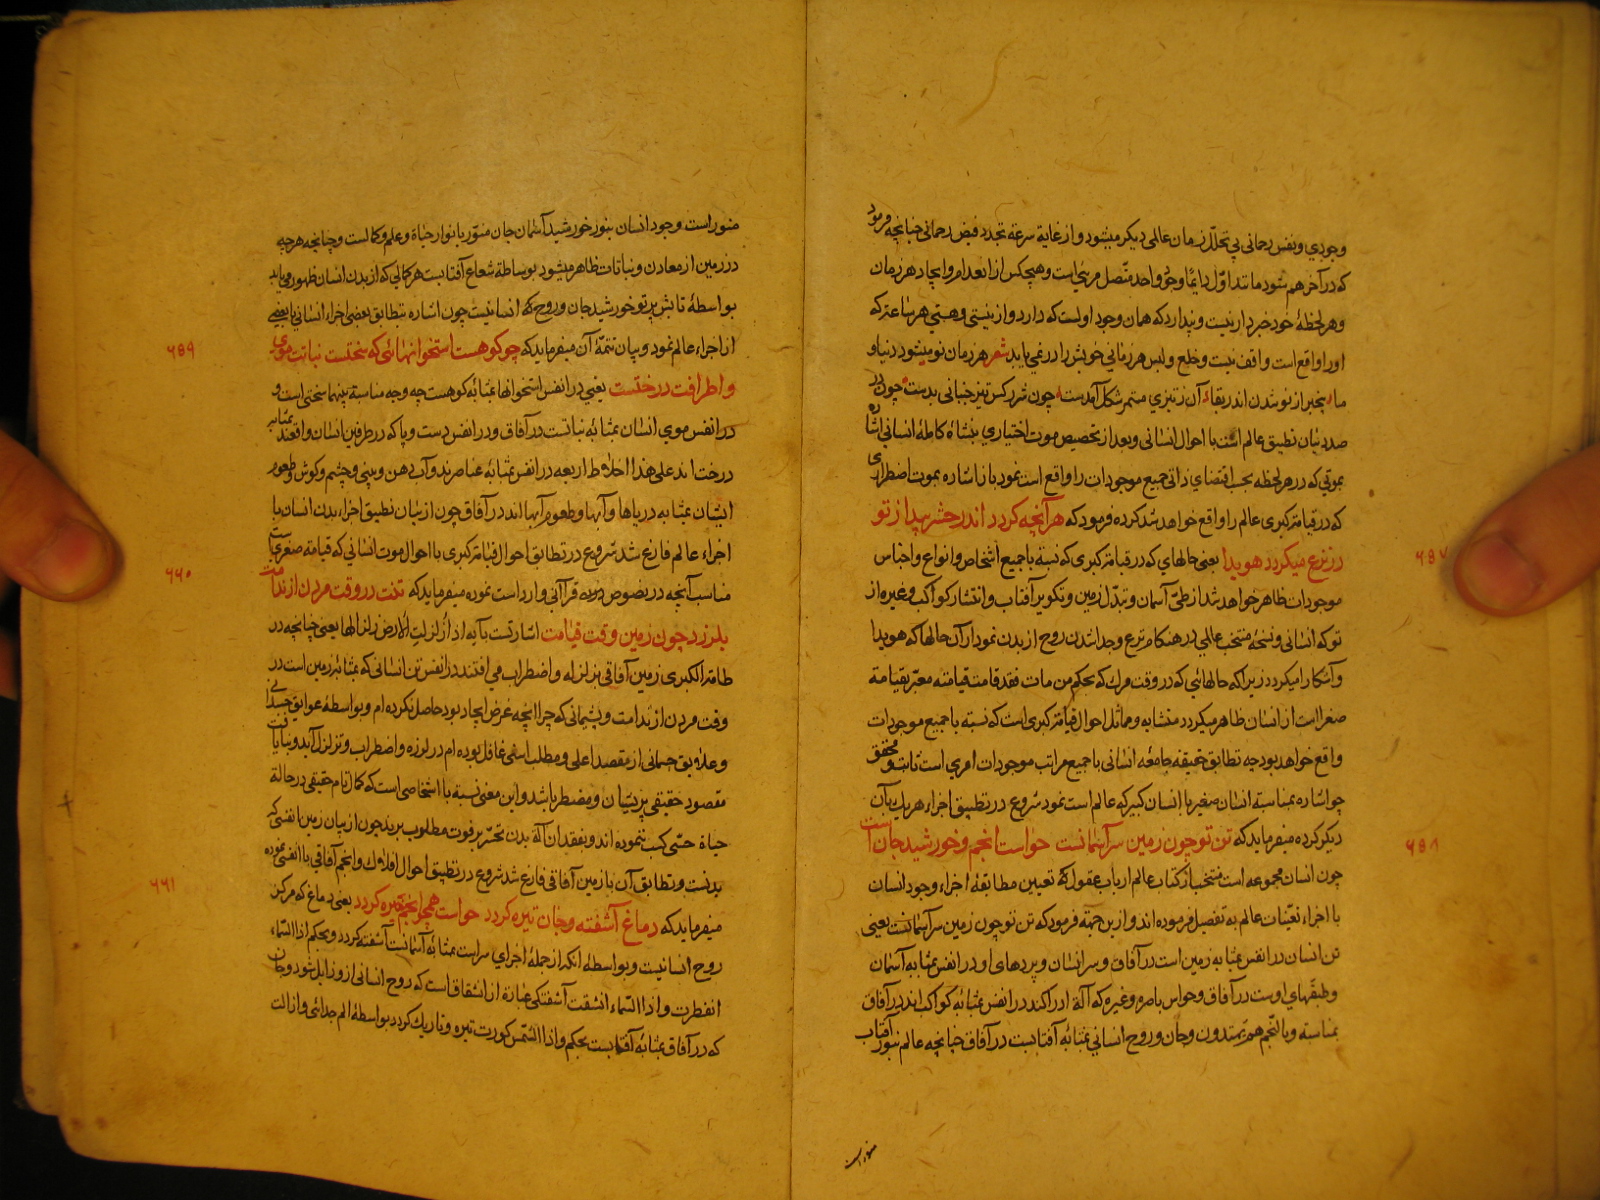 وجودي ونفس رحمانی بی تخلل زمان عالمی دیکر میشود و از غایة سرعة تجدد فیض رحمانی چنانچه فرمود
که در آخر هم شود مانند اول دایما وجود واحد متصل مرئی است و هیچکس از انعدام و ایجاد هر زمان
و هر لحظهٔ خود خبردار نیست و پندارد که همان وجود اولست که دارد و از نیستی و هستی هر ساعتر که
اورا واقع است واقف نیست و خلع و لبس هر زمانی خویش را در نمی یابد شعر هر زمان نو میشود دنیا و
ما بیخبر از نو شدن اندر بقا آن ز تیزی مستمر شکل آمدست چون شرر کش تیز جنبانی بدست چون در
صدد بیان تطبیق عالم است با احوال انسانی و بعد از تخصیص موت اختیاری بنشاهٔ کاملهٔ انسانی اشاره
بموتی که در هر لحظه بحسب اقتضای ذاتی جمیع موجودات را واقع است نمود باز اشاره بموت اضطراری
که در قیامة کبری عالم را واقع خواهد شد کرده فرمود که هر آنچه کردد اندر حشر پیدا ز تو
در نزع میکردد هویدا یعنی حالهای که در قیامة کبری که نسبة با جمیع اشخاص و انواع و اجناس
موجودات ظاهر خواهد شد از طیّ آسمان و تبدّل زمین و تکویر آفتاب و انتشار کواکب و غیره از
تو که انسانی و نسخهٔ منتخب عالمی در هنکام نزع و جدا شدن روح از بدن نمودار آن حالها که هویدا
و آشکارا میکردد زیرا که حالهائی که در وقت مرک که بحکم من مات فقد قامت قیامته معبّر بقیامة
صغرا است از انسان ظاهر میکردد متشابه و مماثل احوال قیامة کبری است که نسبة با جمیع موجودات
واقع خواهد بود چه تطابق حقیقه جامعه انسانی با جمیع مراتب موجودات امری است ثابت و محقق
چو اشاره بمناسبه انسان صغیر با انسان کبیر که عالم است نمود شروع در تطبیق اجزاء هر یک بآن
دیکر کرده میفرماید که تن تو چون زمین سر آسمانست حواست انجم و خورشید جان است
چون انسان مجموعه است منتخب از کتاب عالم ارباب عقول که تعیین مطابقهٔ اجزاء وجود انسان
با اجزاء تعیّنات عالم به تفصیل فرموده اند و از ین جهة فرمود که تن تو چون زمین سر آسمانست یعنی
تن انسان در انفس بمثابه زمین است در آفاق و سر انسان و پردهای او در انفس بمثابه آسمان
و طبقهای اوست در آفاق و حواس باصره و غیره که آلة ادراکند در انفس بمثابه کواکب اند در آفاق
بمناسبه و بالنجم هم یهتدون و جان و روح انسانی بمثابه آفتابست در آفاق چنانچه عالم بنور آفتاب
منور است
۶۵۷
۶۵۸
منور است وجود انسان بنور خورشید آسمان جان منوّر بانوار حیاة و علم و کمالست و چنانچه هر چه
در زمین از معادن و نباتات ظاهر میشود بوساطة شعاع آفتابست هر کمالی که از بدن انسان ظهور می یابد
بواسطهٔ تابش پرتو خورشید جان و روح که انسانیت چون اشاره بتطابق بعضی اجزاء انسانی با بعضی
از اجزاء عالم نمود و بیان تتمهٔ آن میفرماید که چو کوهست استخوانهائی که سختست نباتت موی
و اطرافت درختست یعنی در انفس استخوانها بمثابه کوهست چه وجه مناسبة بینهما سختی است و
در انفس موی انسان بمثابه نباتست در آفاق و در انفس دست و پا که در طرفین انسان واقعند بمثابه
درخت اند علی هذا اخلاط اربعه در انفس بمثابه عناصرند و آب دهن و بینی و چشم و کوش و طعوم
ایشان بمثابه دریاها و آبها و طعوم آبها اند در آفاق چون از بیان تطبیق اجزاء بدن انسان با
اجزاء عالم فارغ شد شروع در تطابق احوال قیامة کبری با احوال موت انسانی که قیامة صغری است
مناسب آنچه در نصوص قرآنی وارد است نموده میفرماید که تنت در وقت مردن از ندامت
بلرزد چون زمین وقت قیامت اشارتست بآیه اذا زلزلت الارض زلزالها یعنی چنانچه در
طامة الکبری زمین آفاقی بزلزله و اضطراب می افتند در انفس تن انسانی که بمثابهٔ زمین است در
وقت مردن از ندامت و پشیمانی که چرا آنچه غرض ایجاد بود حاصل نکرده ام و بواسطهٔ عوایق جسدانی
و علایق جسمانی از مقصد اعلی و مطلب اسنی غافل بوده ام در لرزه و اضطراب و تزلزل آید و بنایافت
مقصود حقیقی پریشان و مضطر باشد و این معنی نسبة با اشخاصی است که کمال تام حقیقی در حالة
حیاة حسّی کسب ننموده اند و بفقدان آلة بدن تحسّر بر فوت مطلوب برند چون از بیان زمین انفسی که
بدنست و تطابق آن با زمین آفاقی فارغ شد شروع در تطبیق احوال افلاک و انجم آفاقی با انفسی نموده
میفرماید که دماغ آشفته و جان تیره کردد حواست همچو انجم خیره کردد یعنی دماغ که مرکز
روح انسانیت و بواسطهٔ آنکه از جملهٔ اجزای سر است بمثابه آسمانست آشفته کردد و بحکم اذا السماء
انفطرت و اذا السّماء انشقت آشفتکی عبارة از انشقاقست که روح انسانی ازو زایل شود و جان
که در آفاق بمثابه آفتابست بحکم و اذا الشّمس کورت تیره و تاریک کردد بواسطهٔ الم جدائی و ازالت
۶۵۹
۶۶۰
۶۶۱